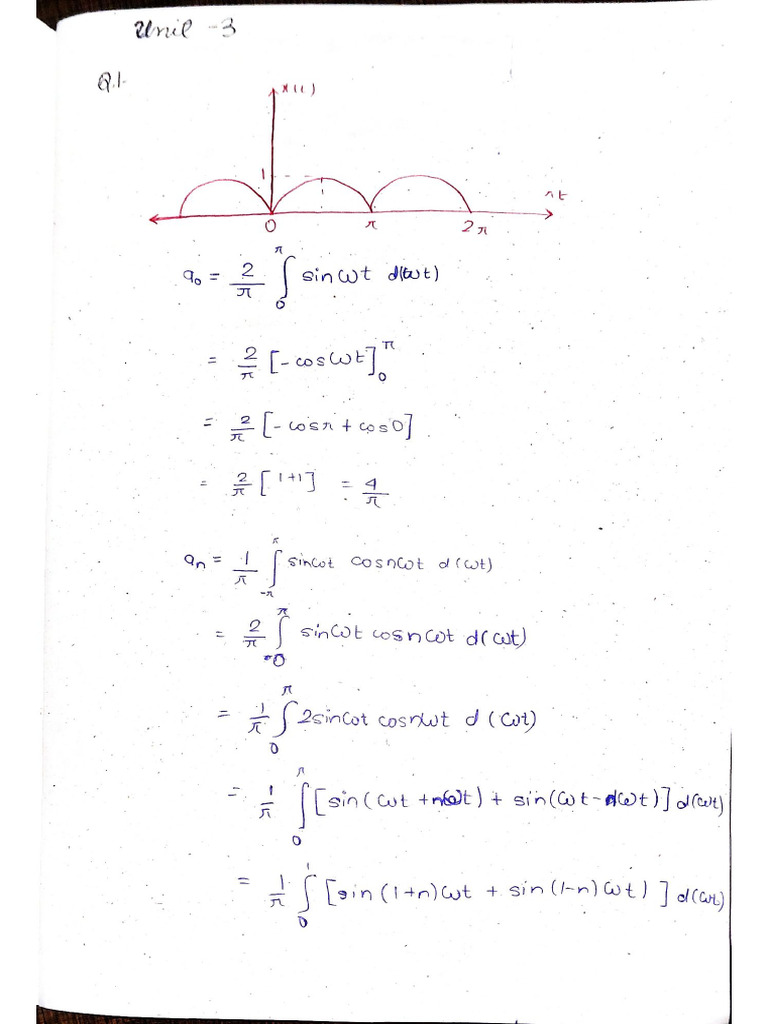 Unit -3
Q.1.
x(t)
1
t
0 π 2π
a₀ = 2/π ∫₀^π sinωt d(ωt)
= 2/π [-cosωt]₀^π
= 2/π [-cosπ + cos0]
= 2/π [1+1] = 4/π
aₙ = 1/π ∫₋π^π sinωt cosnωt d(ωt)
= 2/π ∫₀^π sinωt cosnωt d(ωt)
= 1/π ∫₀^π 2sinωt cosnωt d(ωt)
= 1/π ∫₀^π [sin(ωt +nωt) + sin(ωt-nωt)] d(ωt)
= 1/π ∫₀ [sin(1+n)ωt + sin(1-n)ωt)] d(ωt)